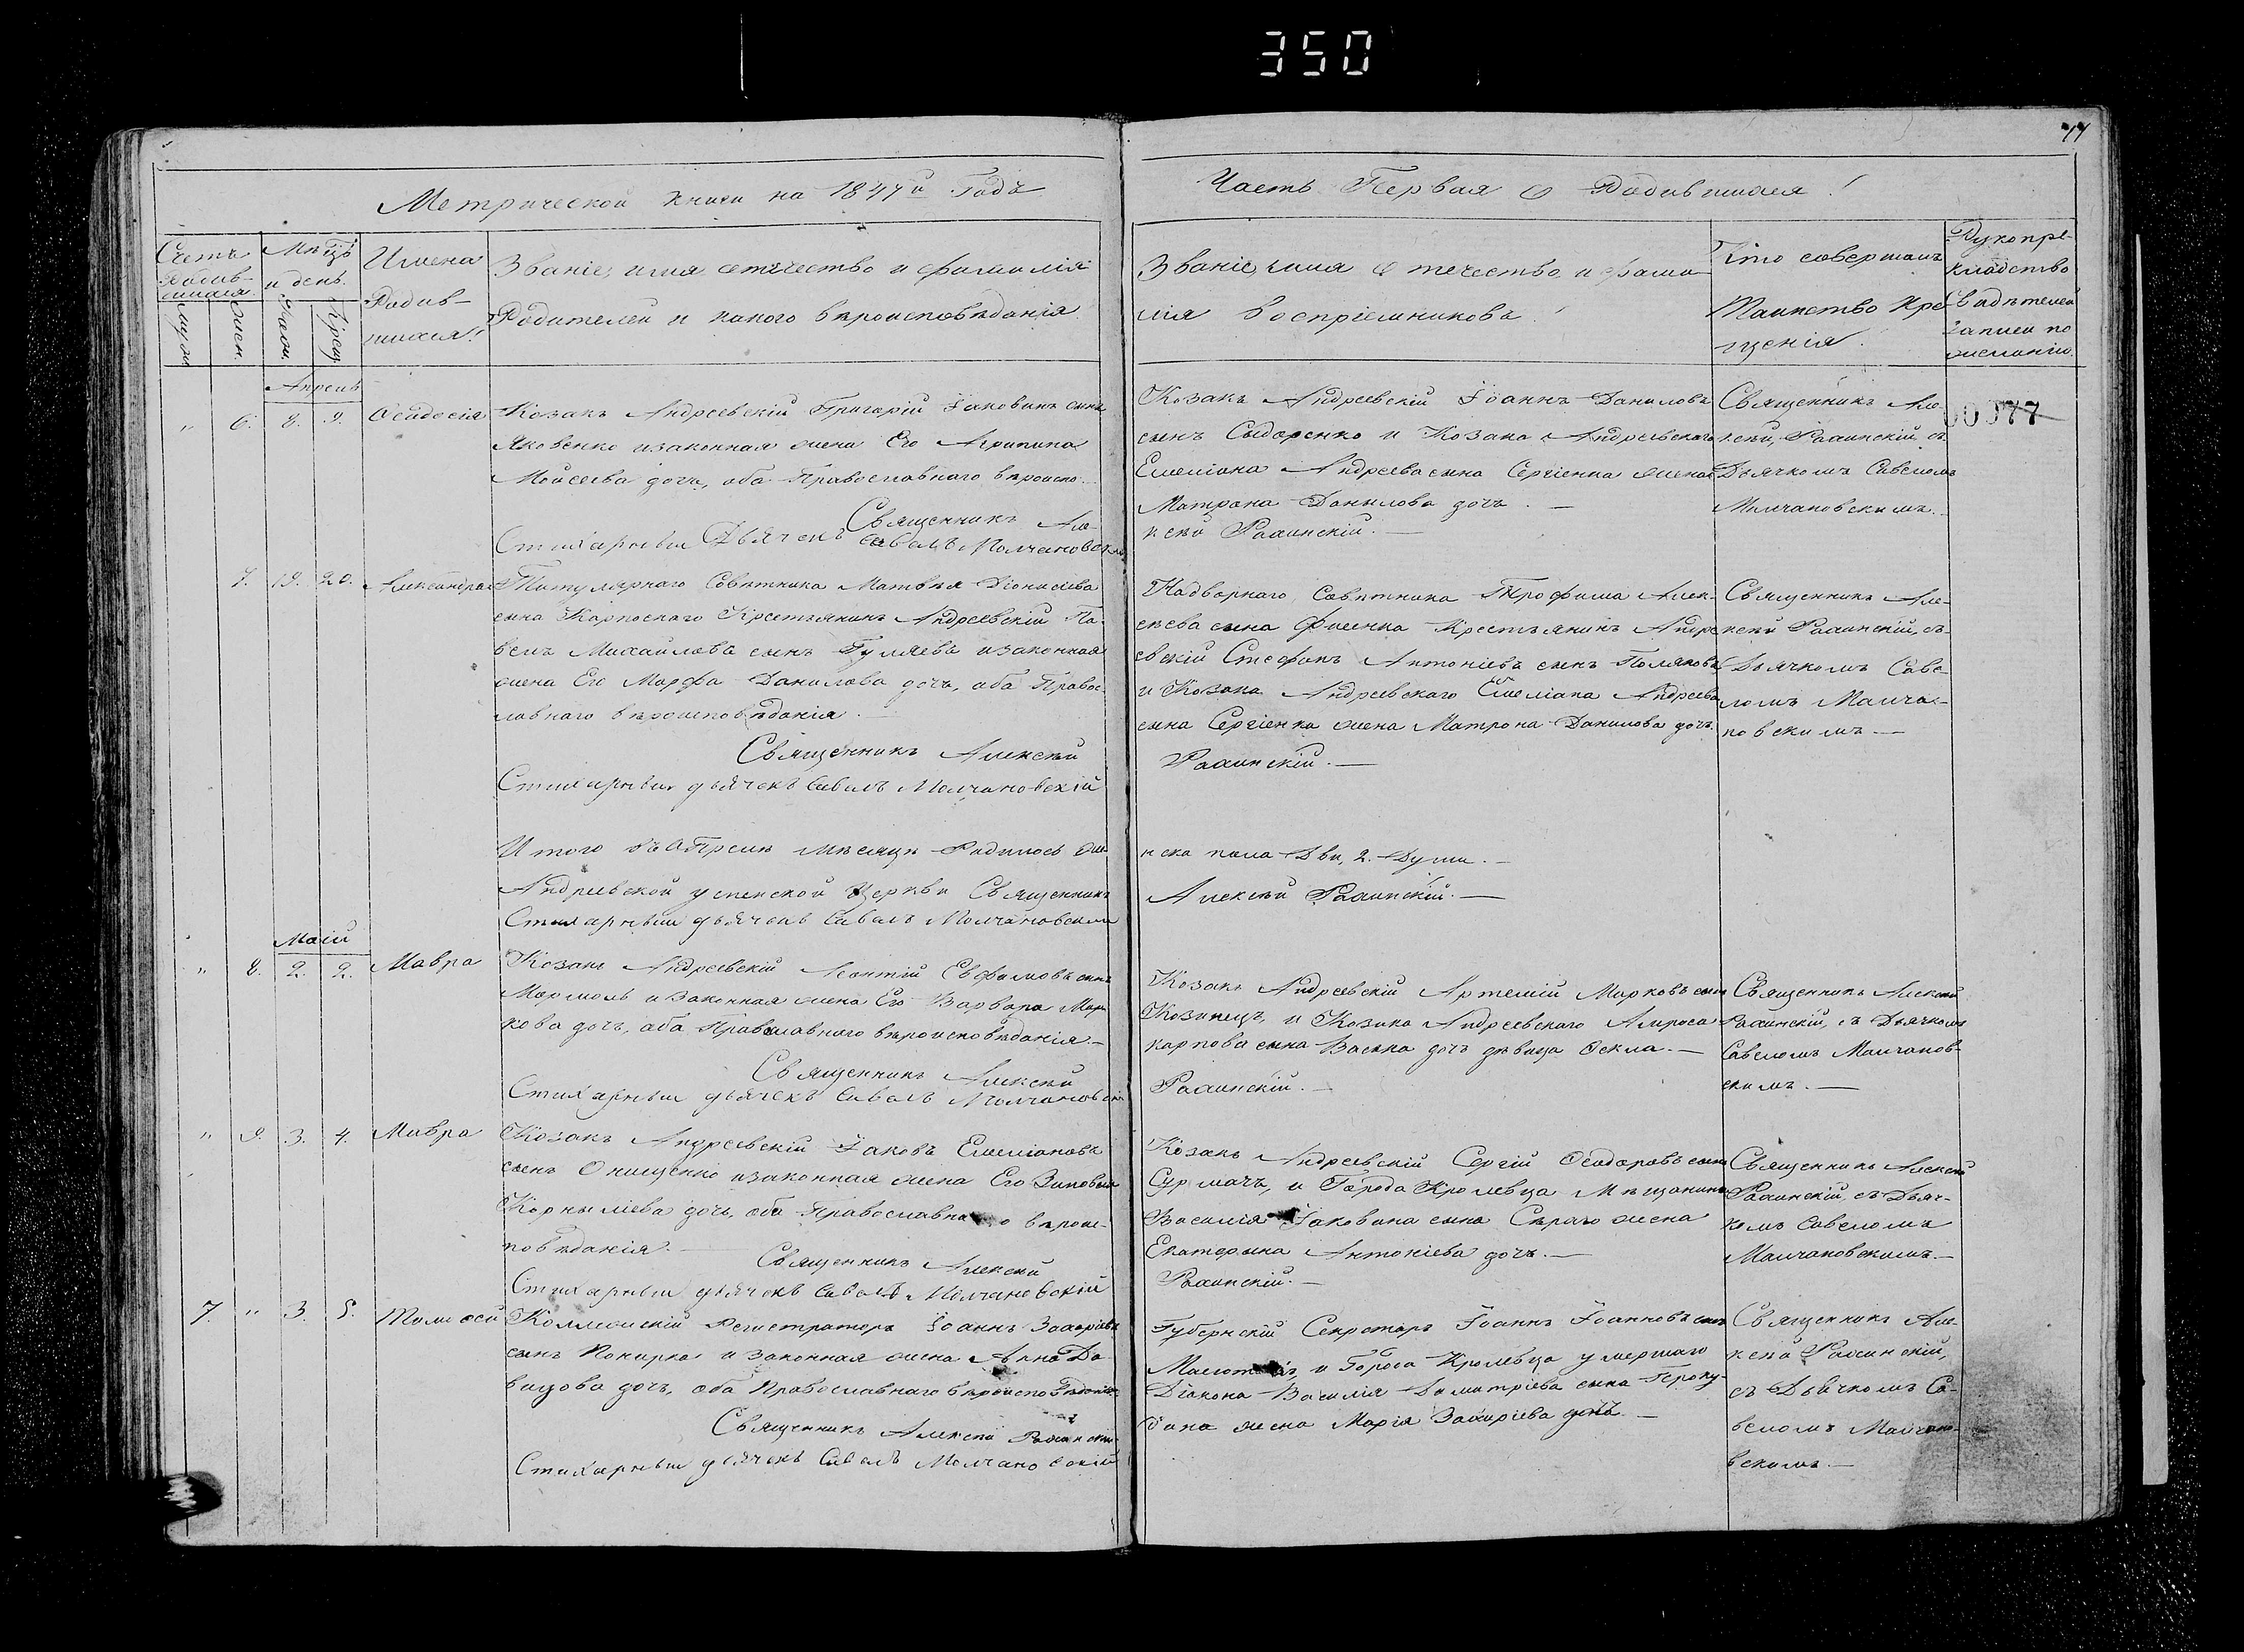 350
77
Метрической книги на 1847й Годъ
Часть Первая О Родившихся!
Счетъ Родившихся
Мѣсяцъ и день
Имена Родившихся!
Званіе, имя отчество и фамилія
Родителей и какого вѣроисповѣданія
муж.
жен.
Рожд.
Крещ.
Званіе, имя отчество и фами-
лія воспріемниковъ!
Кто совершалъ
Таинство Кре-
щенія.
Рукопри-
кладство
Свидѣтелей
записи по
желанію.
Апрель
" 6. 8. 9. Ѳеодосія
Козакъ Андреевскій Григорій Іаковинъ сынъ
Яковенко изаконная жена Его Агрипина
Моисеева дочь, оба Православнаго вѣроиспо.
Священникъ Але-
Стихарный Дьячекъ Савелъ Молчановскій
Козакъ Андреевскій Іоаннъ Даниловъ
сынъ Сыдоренко и Козака Андреевскаго
Емеліана Андреева сына Сергіенка жена
Матрона Данилова дочь. —
ксѣй Рахинскій. —
Священникъ Але-
ксѣй, Рахинскій съ
Дьячкомъ Савеломъ
Молчановскимъ.
00077
7. 19. 20. Александра
Титулярнаго Совѣтника Матвѣя Діонисіева
сына Карпоскаго Крестьянинъ Андреевскій Па-
велъ Михайловъ сынъ Гуляевъ изаконная
жена Его Марфа Данилова дочь, оба Правос-
лавнаго вѣроисповѣданія. —
Священникъ Алексѣй
Стихарный дьячекъ Савелъ Молчановскій
Надворнаго Совѣтника Трофима Алек-
сѣева сына Фиенка Крестьянинъ Андре-
евскій Стефанъ Антоніевъ сынъ Поляковъ
и Козака Андреевскаго Емеліана Андреева
сына Сергіенка жена Матрона Данилова дочь.
Рахинскій. —
Священникъ Але-
ксѣй Рахинскій, съ
Дьячкомъ Саве-
ломъ Молча-
новскимъ —
Итого въ Апрелѣ мѣсяцѣ Родилось же-
нска пола Двѣ, 2. Души. —
Андреевской успенской Церкви Священникъ
Алексѣй Рахинскій. —
Стихарный дьячекъ Савелъ Молчановскій
Маій
" 8. 2. 2. Мавра
Козакъ Андреевскій Леонтій Евфимовъ сынъ
Мармоль изаконная жена Его Варвара Мар-
кова дочь, оба Православнаго вѣроисповѣданія —
Священникъ Алексѣй
Стихарный дьячекъ Савелъ Молчановскій
Козакъ Андреевскій Артемій Марковъ сынъ
Козинецъ, и Козака Андреевскаго
Карпова сына Васька дочь дѣвица Ѳекла. —
Рахинскій. —
Священникъ Алексѣй
Рахинскій, съ Дьячкомъ
Савеломъ Молчанов-
скимъ. —
" 9. 3. 4. Мавра
Козакъ Андреевскій Іаковъ Емеліановъ
сынъ Онищенко изаконная жена Его Зиновія
Корныліева дочь, оба Православнаго вѣроис-
повѣданія. —
Священникъ Алексѣй
Стихарный дьячекъ Савелъ Молчановскій
Козакъ Андреевскій Сергій Ѳеодоровъ сынъ
Сурмачъ, и Города Кролевца Мѣщанина
Василія Іаковина сына Сѣраго жена
Екатерына Антоніева дочь. —
Рахинскій. —
Священникъ Алексѣй
Рахинскій, съ Дьяч-
комъ Савеломъ
Молчановскимъ. —
7. " 3. 5. Тимоѳей
Коллежскій Регистраторъ Іоаннъ Захаріевъ
сынъ Покирка изаконная жена Анна Да-
видова дочь, оба Православнаго вѣроисповѣданія
Священникъ Алексѣй Рахинскій
Стихарный дьячекъ Савелъ Молчановскій
Губернскій Секретарь Іоаннъ Іоанновъ сынъ
и Города Кролевца умершаго
Діакона Василія Димитріева сына
жена Марія Захаріева дочь —
Священникъ Але-
ксѣй Рахинскій,
съ Дьячкомъ Са-
веломъ Молчано-
вскимъ. —